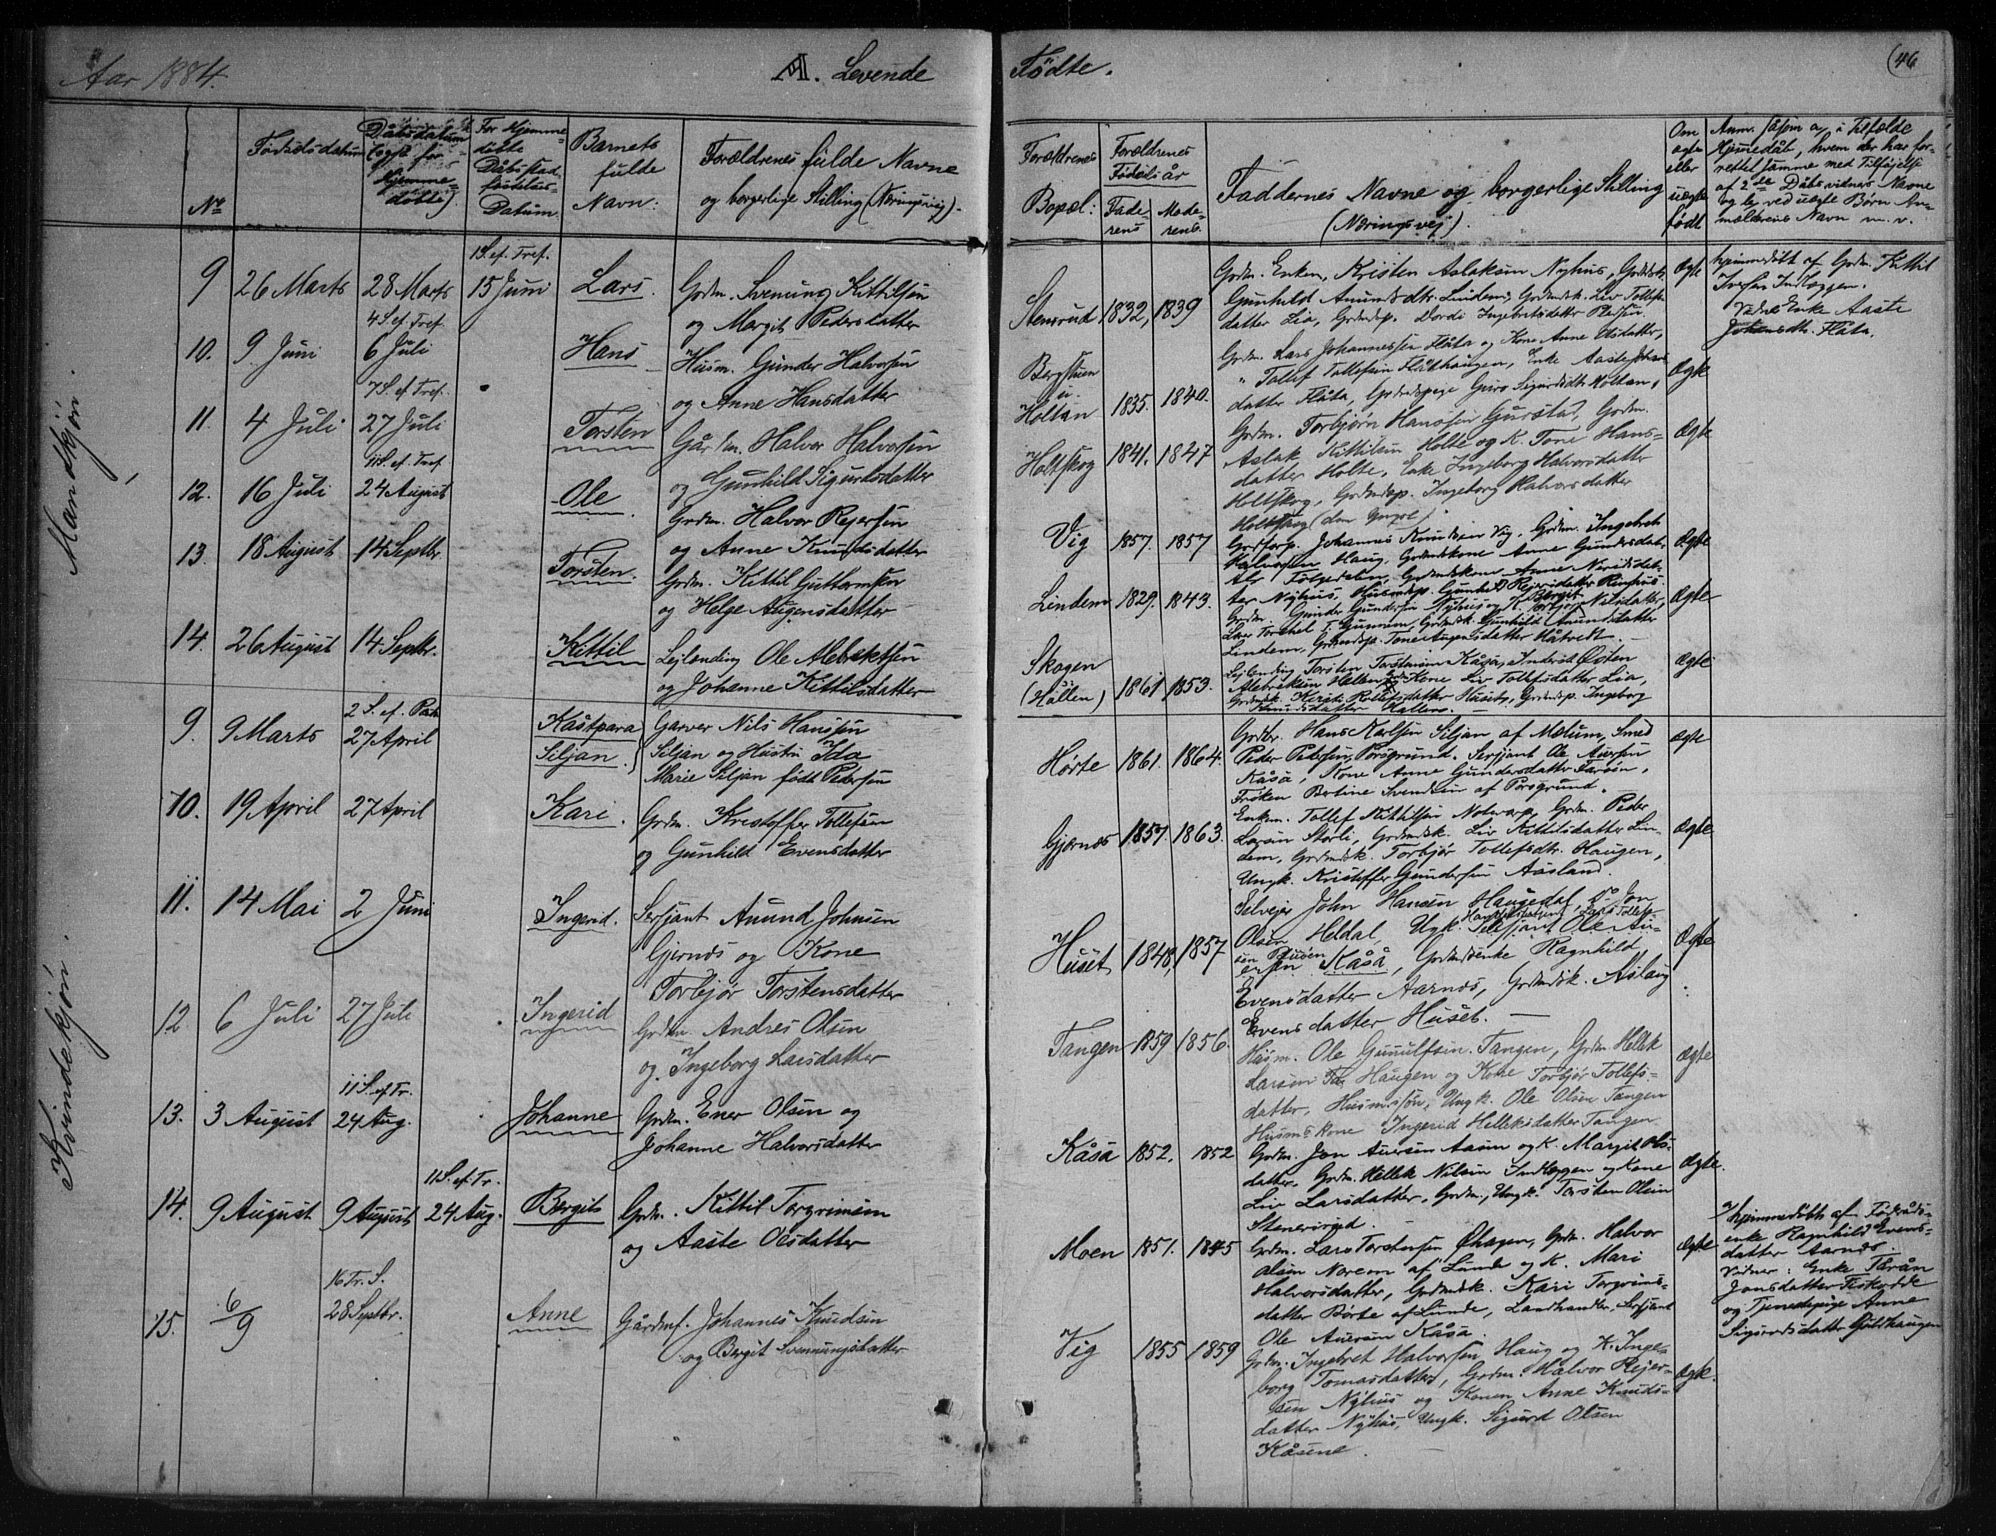 Aar 1884.
A. Levende Födte.
46
Mandkjön.
Kvindekjön.
No
Födselsdatum
Dåbsdatum
(også for
Hjemme=
döbte)
For Hjemme=
döbte
Dåbsstad-
festelses
Datum.
Barnets
fulde
Navn:
Forældrenes fulde Navne
og borgerlige Stilling (Næringsvej).
Forældrenes
Bopæl:
Forældrenes
Födselsår
Fade-
rens
Mode-
rens
Faddernes Navne og borgerlige Stilling
(Næringsvej).
Om
ægte
eller
uægte
födt
Anm. såsom a, i Tilfælde
Hjemedåb, hvem der har for-
rettet samme med Tilföjelse
af 2de Dåbsvidners Navne
og b, ved uægte Börn An-
mælderens Navn m. v.
9 26 Marts 28 Marts 1 S. ef. Tref. 15 Juni Lars. Grdm. Svenung Kittilsen
og Margit Pedersdatter
Stensrud 1832, 1839
Grdm. Enken, Kristen Aslaksen Nyhus, Grdmsk.
Gunhild Amundsdtr. Lindem, Grdmdsk. Liv Tollefs
datter Lia, Grdmdsp. Dordi Ingebretsdatter
Ægte
hjemmedöbt af Grdm. Kittil
Iversen Indlæggen.
Vidner Enke Aaste
Johansdtr. Flåta.
10. 9. Juni 4 S. ef. Tref. 6 Juli Hans Husm. Gunder Halvorsen
og Anne Hansdatter
Bergstuen
u.
Holtan 1835. 1840.
Grdm. Lars Johannessen Flåta og Kone Anne Olsdatter,
" Tollef Tollefsen Flåthaugen, Enke Aaste Johans
datter Flåta, Grdmdspige Guro Sigurdsdtr Holtan,
Ægte
11. 4 Juli 7 S. ef. Tref. 27 Juli Torsten Gårdm. Halvor Halvorsen
og Gunhild Sigurdsdatter
Holtskog 1841. 1847
Grdm. Torbjörn Hansen Gurstad, Grdm.
Aslak Kittilsen Holte og K. Tone Hans=
datter Holte, Enke Ingeborg Halvorsdatter
Holtskog, Grdmdsp. Ingeborg Halvorsdatter
Holtskog (den Yngre).
Ægte
12. 16 Juli 11 S. ef. Tref. 24 August Ole. Grdm. Halvor Rejersen
og Anne Knudsdatter
Vig 1857. 1857
Grdforp. Johannes Knudsen Vig, Grdm. Ingebret
Halvorsen Haug, Grdmdskone Anne Gundersdat-
ter Fölgedalen, Grdmdskone Anne
ter Nyhus, Grdmdsp. Gunhild Rejersdatter
Ægte
13. 18 August 14 Septbr. Torsten. Grdm. Kittil Guttormsen
og Helge Augensdatter
Lindem 1829. 1843.
Grdm. Gunder Gundersen Nyhus og K. Bergit Nilsdatter,
Lindem, Grdmdsp. Tone Augensdatter Håtvedt.
Ægte
14. 26 August 14 Septbr. Kittil Lejlending Ole Alebrektsen
og Johanne Kittilsdatter
Skogen
(Hollen) 1861 1853.
Lejlending Torsten Torstensen Kåsa, Inderst Östen
Alebreksen Hollen og Kone Liv Tollefsdatter Lia,
Ægte
9. 9 Marts 2 S. ef. Påsk 27 April Kastpara
Siljan. Garver Nils Hansen
Siljan og Hustru Ida
Marie Siljan födt Pedersen
Hörte 1861. 1864.
Grdbr. Hans Karlsen Siljan af Mælum, Smed
Peder Petersen, Porsgrund. Sersjant Ole Auersen
Kåså, Kone Anne Gundersdatter
Fröken Bertine Svendsen af Porsgrund.
ægte
10. 19 April 27 April Kari. Grdm. Kristoffer Tollefsen
og Gunhild Evensdatter
Gjernæs 1857. 1863.
Enkm. Tollef Kittilsen Notevarp, Grdm. Peder
Larsen Storli, Grdmdsk. Liv Kittilsdatter Lin-
dem, Grdmdsk. Torbjör Tollefsdtr. Haugen,
Ungk. Kristoffer Gundersen Aasland.
Ægte
11. 14 Mai 2 Juni Ingerid. Sersjant Amund Johnsen
Gjernæs og Kone
Torbjör Torstensdatter
Huset 1848, 1857
Selvejer John Hansen Haugedal, Do Jon
Olsen Heldal, Ungk. Sersjant Ole Au-
ersen Kåså, Grdmdsenke Ragnhild
Evensdatter Aarnæs, Grdmdsk. Aslaug
Evensdatter Huset.
Ægte
12 6 Juli 27 Juli Ingerid Grdm. Andres Olsen
og Ingeborg Larsdatter
Tangen 1859 1856.
Husm. Ole Gunulfsen Tangen, Grdm. Hellek
Larsen Haugen og Kone Torbjör Tollefs=
datter, Husm.ssön, Ungk. Ole Olsen Tangen
Husms kone Ingerid Helleksdatter Tangen
Ægte
13. 3 August 11 S. ef Tr. 24 Aug. Johanne Grdm. Ener Olsen og
Johanne Halvorsdatter
Kåså 1852. 1852
Grdm. Jon Auersen Aasen og K. Margit Ols-
datter, Grdm. Hellek Nilsen Indlæggen og Kone
Liv Larsdatter, Grdm., Ungk. Torsten Olsen
Stenersrød.
Ægte.
14. 9 August 9 August 11 S. ef. Tr. 24 Aug. Bergit Grdm. Kittil Torgrimsen
og Aaste Olsdatter
Moen 1851. 1845
Grdm. Lars Torstensen Öhagen, Grdm. Halvor
Olsen Norem af Lunde og K. Mari
Halvorsdatter, Grdmdsk. Kari Torgrims-
datter Börte af Lunde, Landhandler, Sersjant
Ole Auersen Kåsa.
Ægte
hjemmedöbt af Föderåds-
enke Ragnhild Evens-
datter Aarnæs.
Vidner: Enke Tårån
Jonsdatter Fiskodde
og Tjenestepige Anne
Sigurdsdatter Goldhaugen
15. 6/9 16 Tr. S. 28 Septbr. Anne Gårdmf. Johannes Knudsen
og Bergit Svennungsdatter
Vig 1855 1859
Grdm. Ingebret Halvorsen Haug og K. Inge-
borg Tomasdatter, Grdm. Halvor Rejer-
sen Nyhus og Konen Anne Knuds-
datter Nyhus, Ungk. Sigurd Olsen
Kåsene.
Ægte.